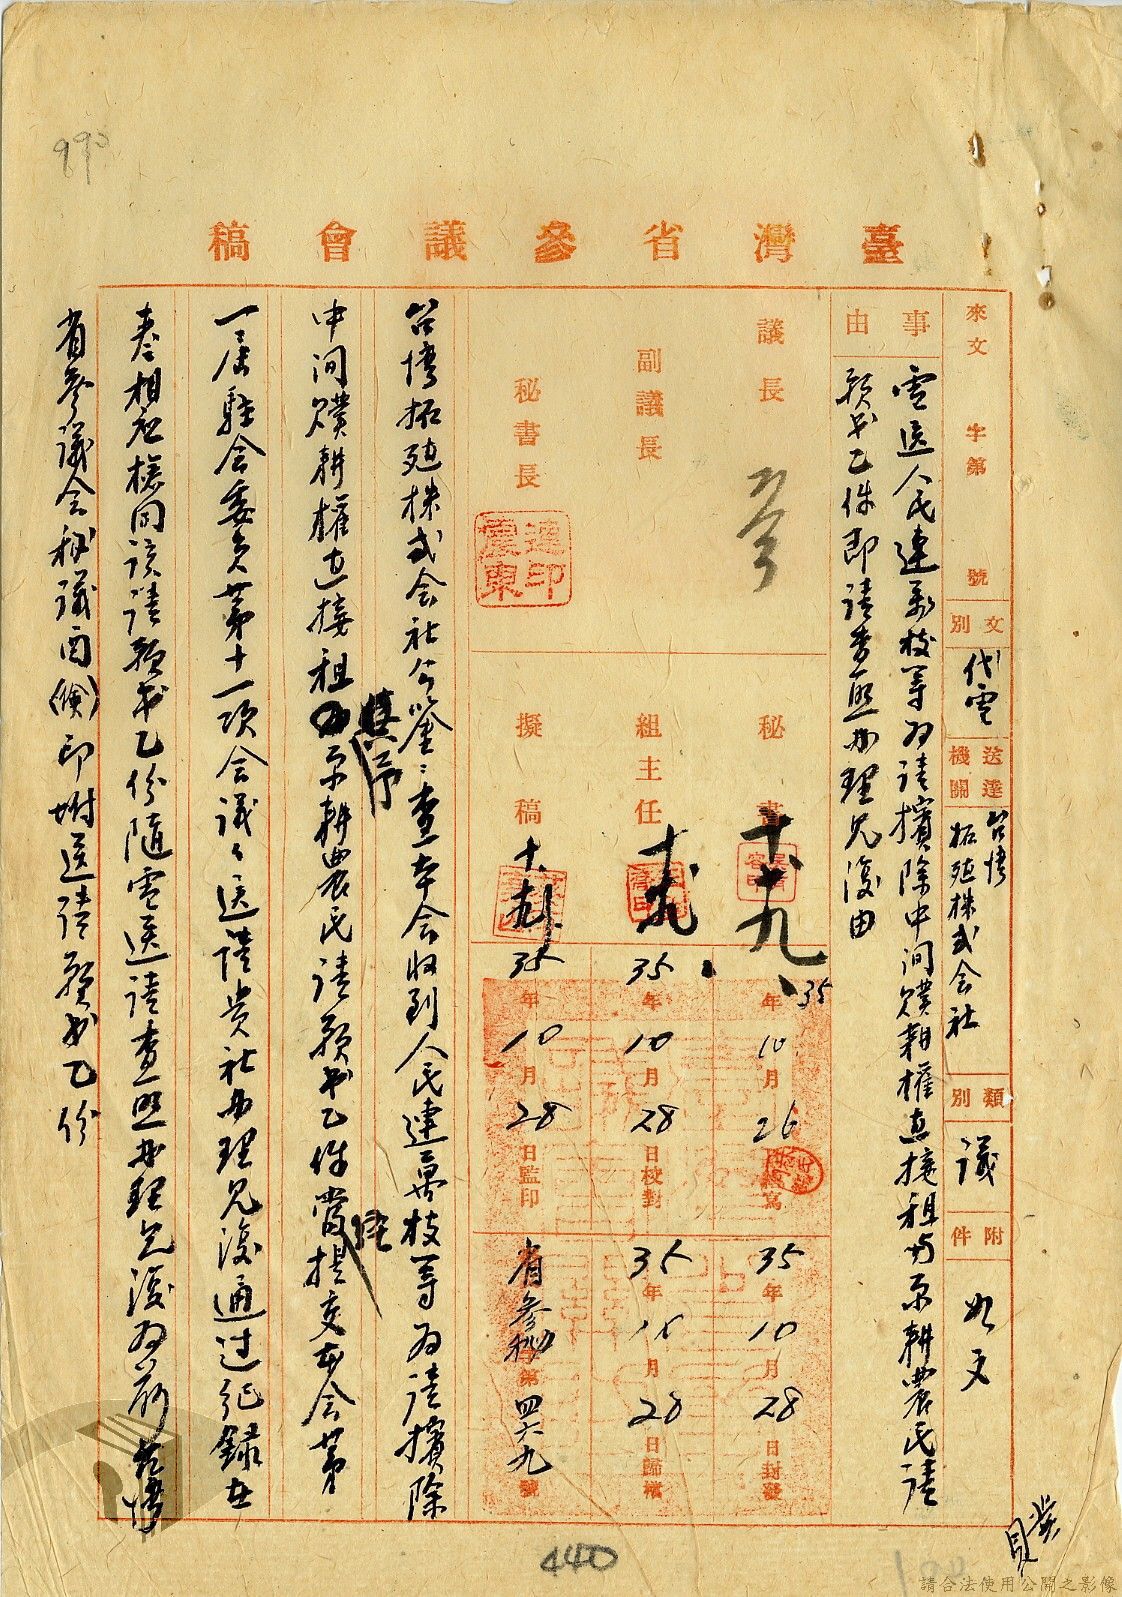 臺灣省參議會稿
來文 字第 號
文別 代電
送達機關 台灣拓殖株式会社
類別 議
附件 如文
事由
電送人民連萬枝等為請擯除中间贌耕權直接租与原耕農民請
願书乙件即請查照办理見復由
議長
副議長
秘書長
連震東印
秘書 十、廿九、
組主任 十、廿九、
擬稿 十、廿九、
35年10月26日繕寫
35年10月28日校對
35年10月28日監印
35年10月28日封發
35年10月28日歸檔
省參秘 第四六九號
台灣拓殖株式会社公鑒：查本会收到人民連萬枝等为請擯除
中间贌耕權直接租与原耕農民請願书乙件當提交本会第
一屆駐会委员第十一次会議議送請貴社办理見復通过紀錄在
卷相应檢同該請願书乙份随電送請查照办理見復为荷台灣
省參議会秘議酉（儉）印附送請願书乙份
440
請合法使用公開之影像